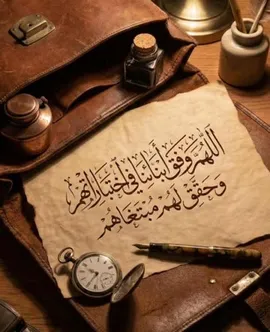 اللهم وفق أبنائنا في اختباراتهم
وحقق لهم مبتغاهم